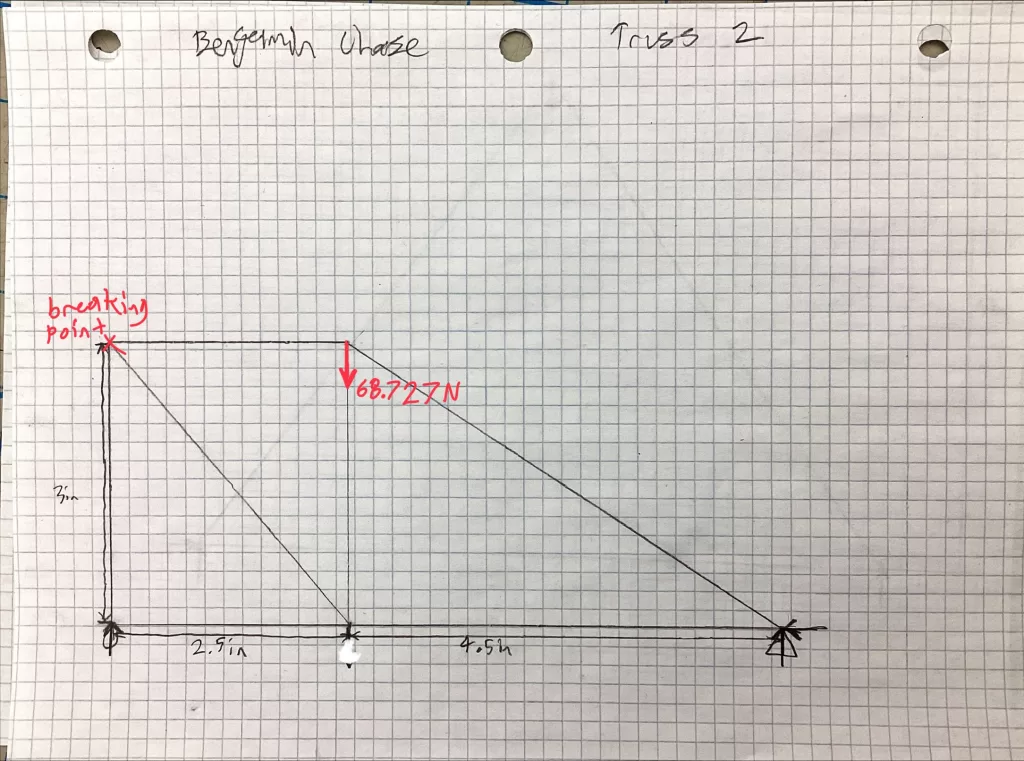 Benjamin Chase
Truss 2
breaking
point
68.727N
3in
2.5in
4.5in